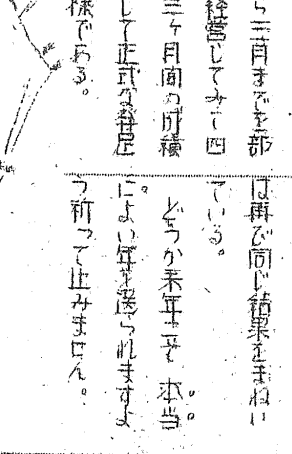 ら三月までを一部
経営してみて四
三ヶ月間の成績
して正式な発足
様である。
は再び同じ結果をまねい
ている。
どうか来年こそ本当
によい年を送られますよ
う祈って止みません。